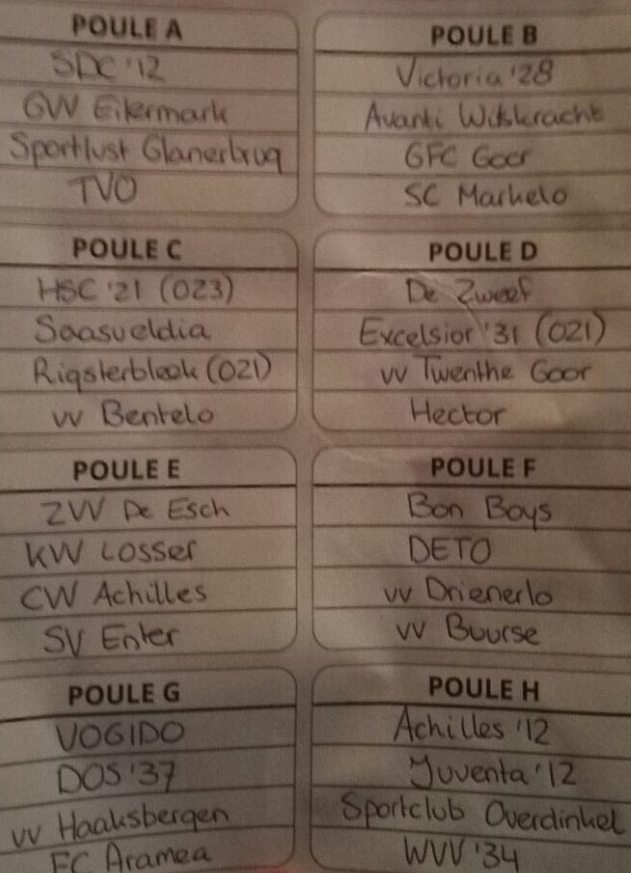 POULE A
SDC '12
GVV Eilermark
Sportlust Glanerbrug
TVO
POULE B
Victoria '28
Avanti Wilskracht
GFC Goor
SC Markelo
POULE C
HSC '21 (023)
Saasveldia
Rigsterbleek (021)
vv Bentelo
POULE D
De Zweef
Excelsior '31 (021)
vv Twenthe Goor
Hector
POULE E
ZVV De Esch
KVV Losser
CVV Achilles
SV Enter
POULE F
Bon Boys
DETO
vv Drienerlo
vv Buurse
POULE G
VOGIDO
DOS '37
vv Haaksbergen
FC Aramea
POULE H
Achilles '12
Juventa '12
Sportclub Overdinkel
WVV '34